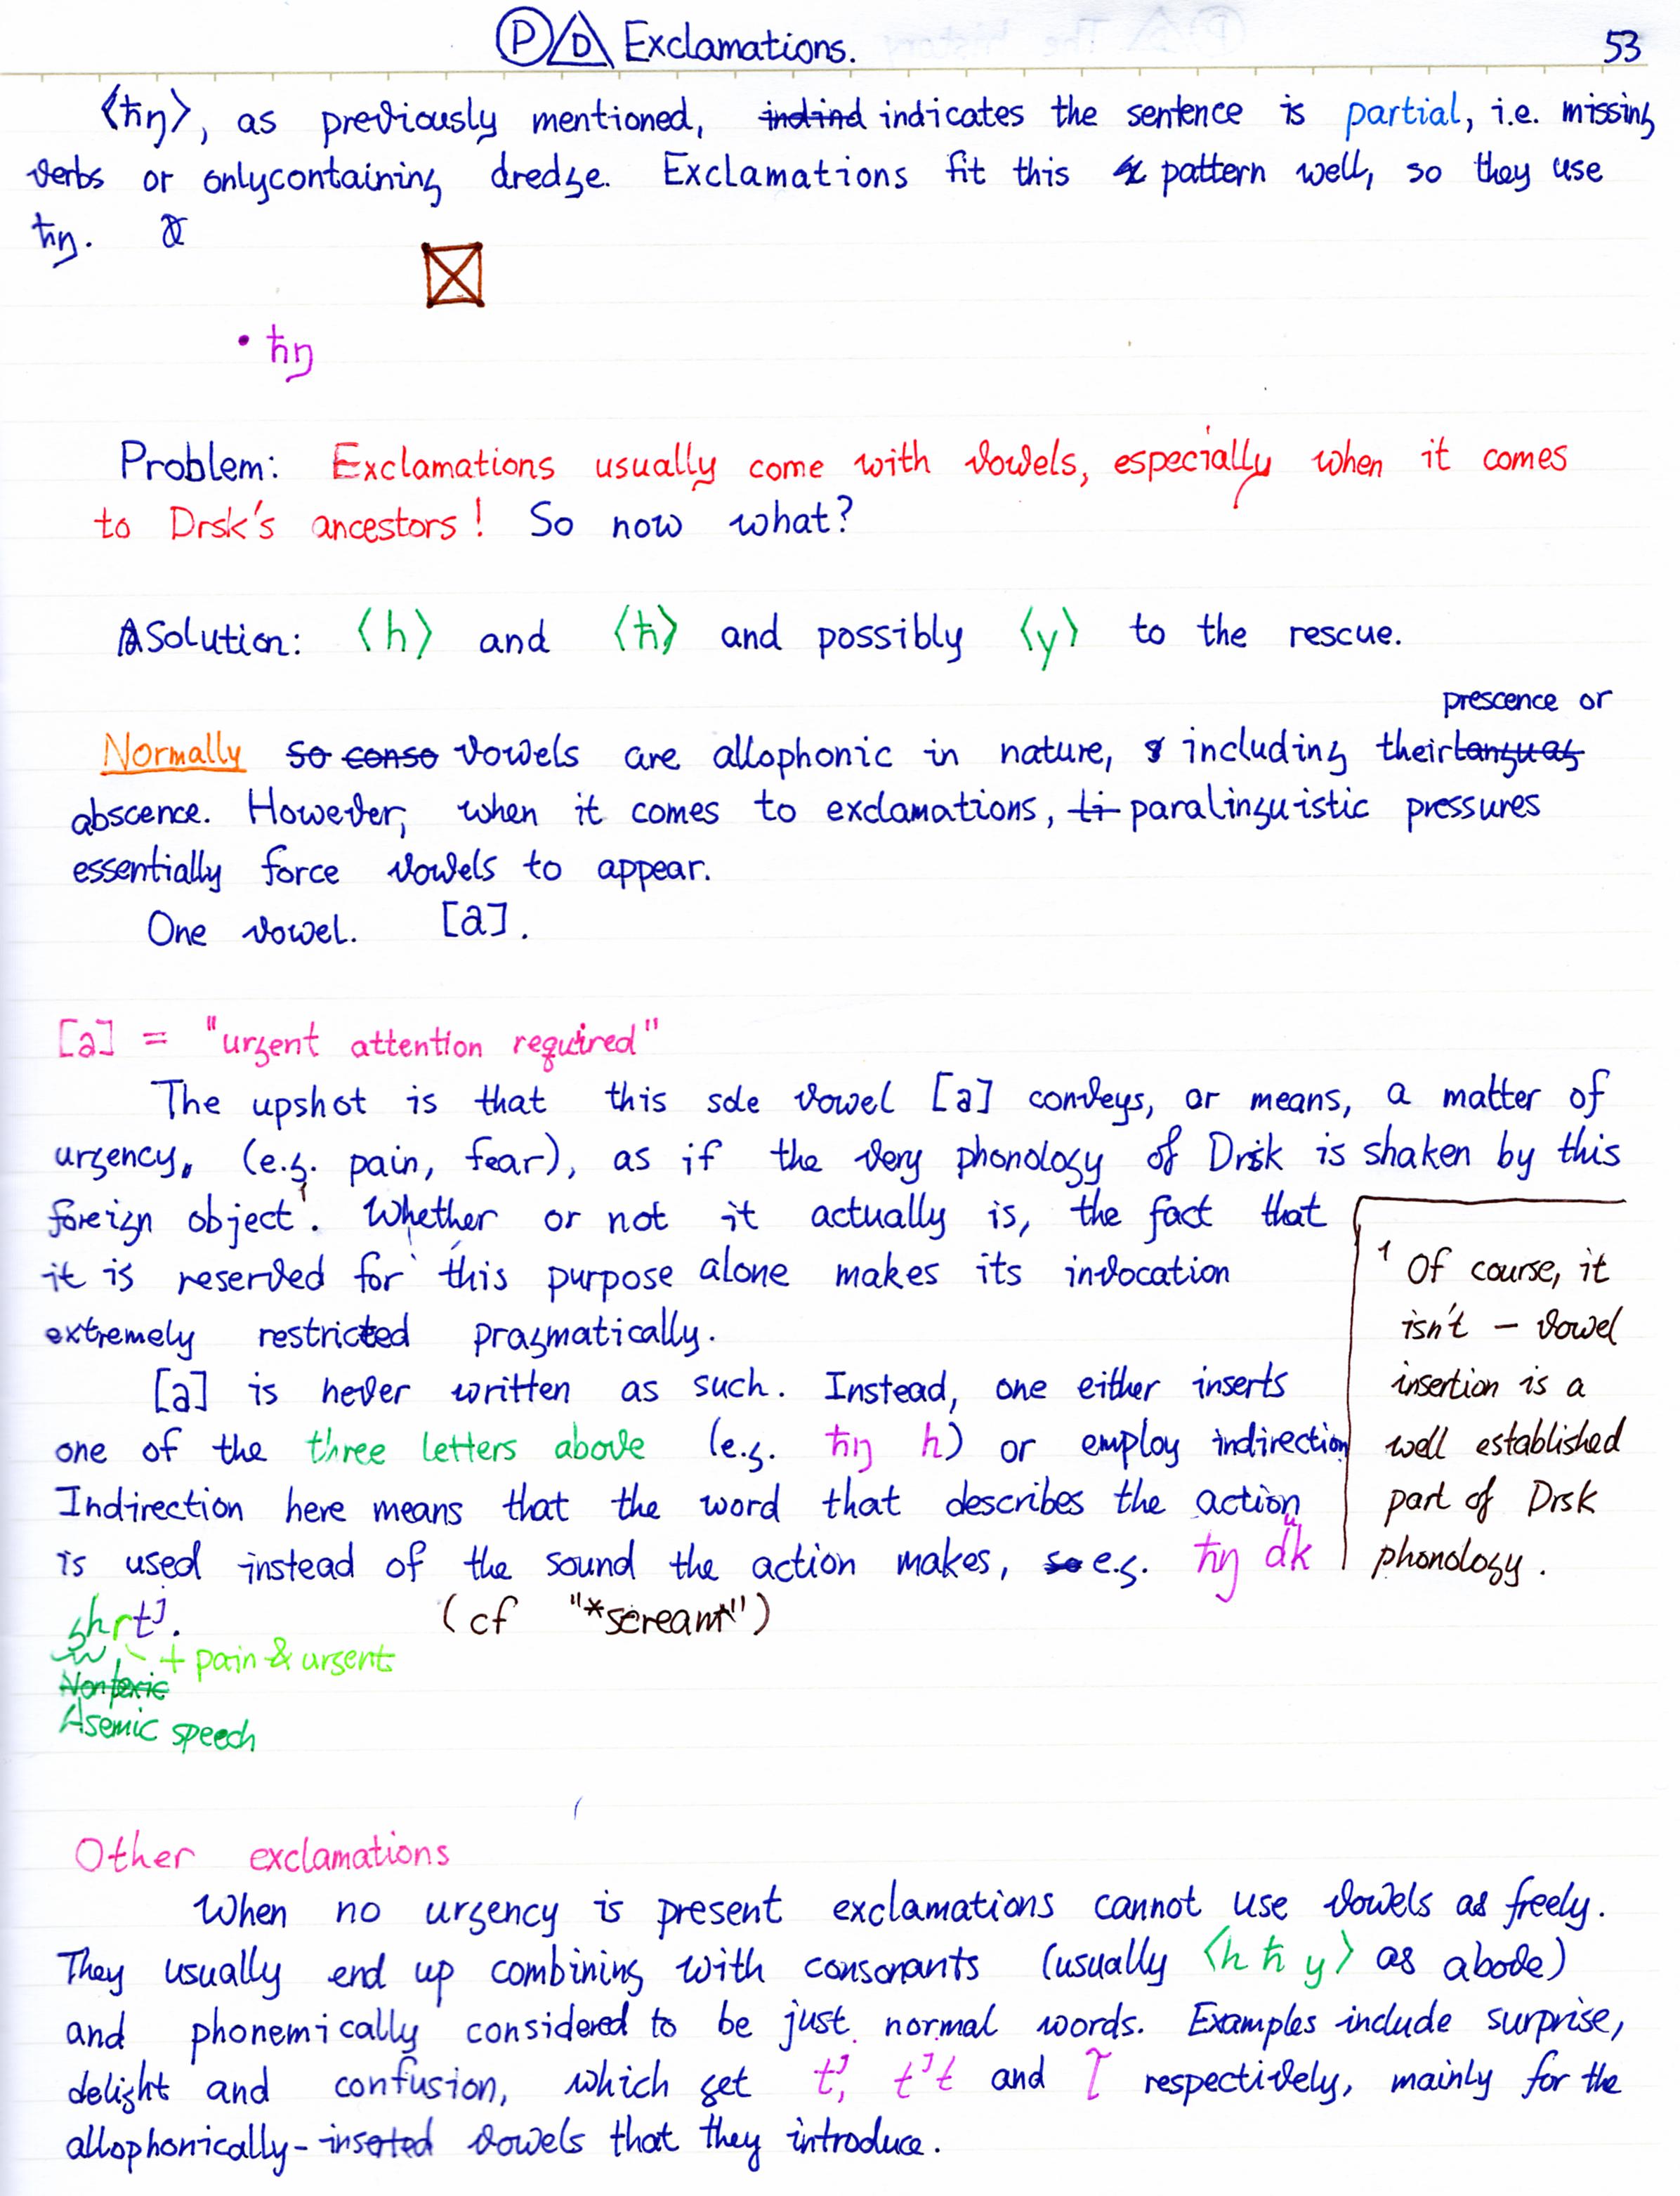 Ⓟ Exclamations. 53
⟨ħŋ⟩, as previously mentioned, indind indicates the sentence is partial, i.e. missing
verbs or onlycontaining dredge. Exclamations fit this pattern well, so they use
ħŋ.
• ħŋ
Problem: Exclamations usually come with vowels, especially when it comes
to Drsk's ancestors! So now what?
Solution: ⟨h⟩ and ⟨ħ⟩ and possibly ⟨y⟩ to the rescue.
prescence or
Normally so conso vowels are allophonic in nature, including their languag
abscence. However, when it comes to exclamations, ti paralinguistic pressures
essentially force vowels to appear.
One vowel. [a].
[a] = "urgent attention required"
The upshot is that this sole vowel [a] conveys, or means, a matter of
urgency, (e.g. pain, fear), as if the very phonology of Drsk is shaken by this
foreign object¹. Whether or not it actually is, the fact that
it is reserved for this purpose alone makes its invocation
extremely restricted pragmatically.
[a] is never written as such. Instead, one either inserts
one of the three letters above (e.g. ħŋ h) or employ indirection
Indirection here means that the word that describes the action
is used instead of the sound the action makes, so e.g. ħŋ dk
ghrtʲ. (cf "*scream*")
+ pain & urgent
Asemic speech
¹ Of course, it
isn't – vowel
insertion is a
well established
part of Drsk
phonology.
Other exclamations
When no urgency is present exclamations cannot use vowels as freely.
They usually end up combining with consonants (usually ⟨h ħ y⟩ as above)
and phonemically considered to be just normal words. Examples include surprise,
delight and confusion, which get tʲ, tʲt and respectively, mainly for the
allophonically-inseted vowels that they introduce.